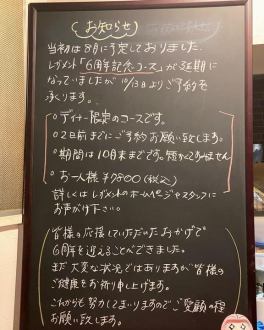 (お知らせ)
当初は8月に予定しておりました.
レガメント「6周年記念コース」が延期に
なっていましたが 10/13日よりご予約を
承ります。
○ディナー限定のコースです。
○2日前までにご予約お願い致します。
○期間は10月末までです。短かくてすみません
○お一人様 ¥7800(税込)
詳しくはレガメントのホームページやスタッフに
お声がけ下さい。
皆様の応援していただいたおかげで
6周年を迎えることができました。
まだ大変な状況ではありますが皆様の
ご健康をお祈り申し上げます。
これからも努力してまいりますのでご愛顧の程
お願い致します。